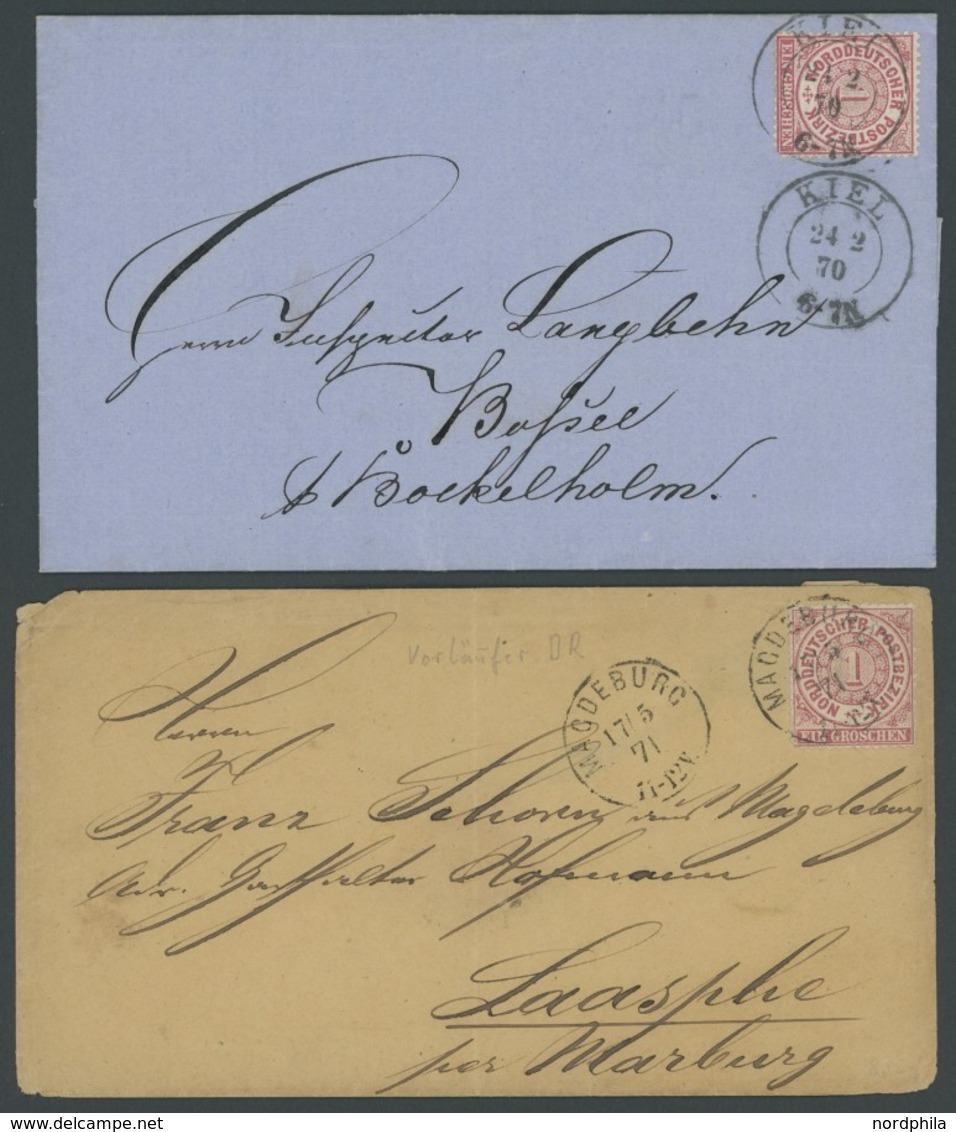 KIEL
2
70
6-7N
NORDDEUTSCHER POSTBEZIRK
1
EIN GROSCHEN
KIEL
24 2
70
6-7N
Herrn Inspector Langbehn
Bossee
p Bockelholm.
Vorläufer DR
MAGDEBURG
17/5
71
11-12V.
MAGDEBURG
NORDDEUTSCHER POSTBEZIRK
1
EIN GROSCHEN
Herrn
Franz Schorn aus Magdeburg
Adr. Gasthalter Hofmann
Laasphe
per Marburg
nordphila